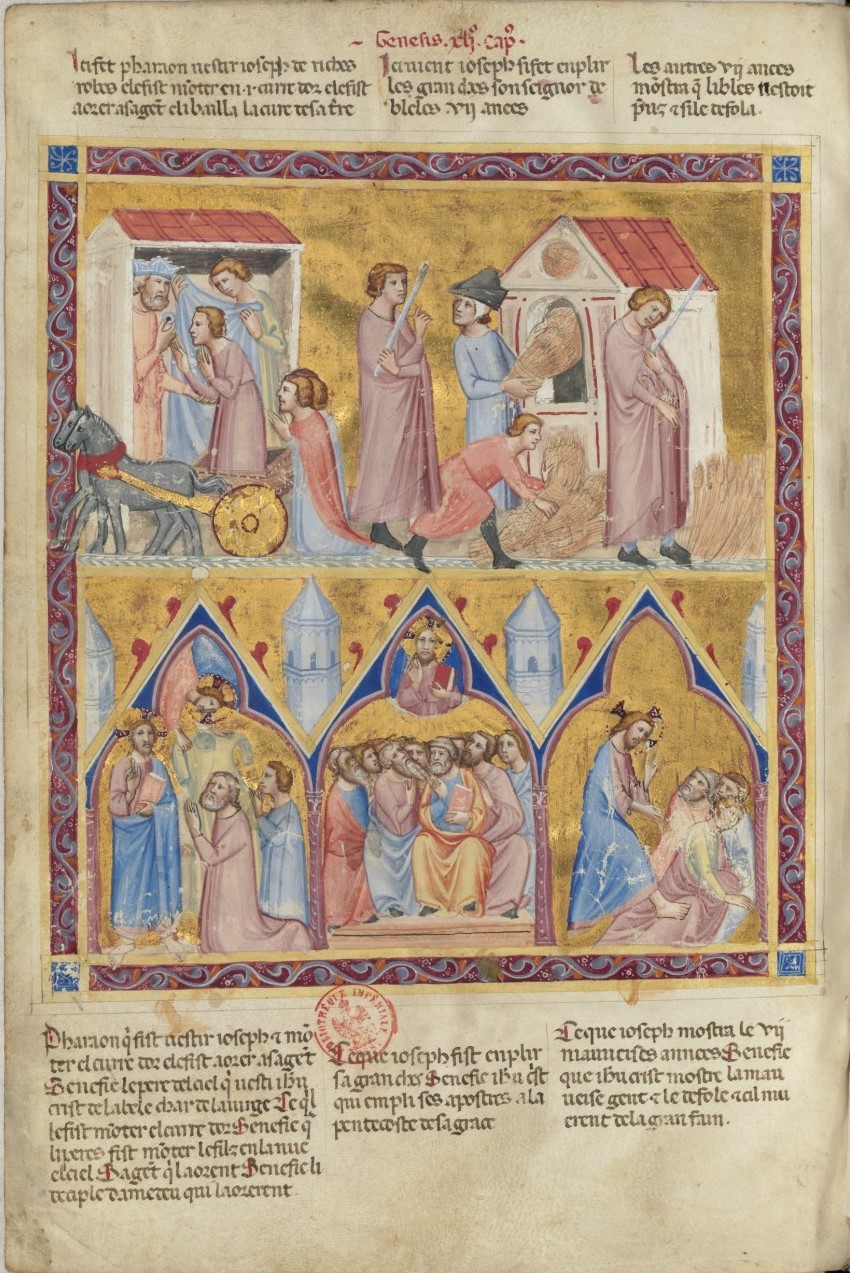 Genesis. xlj. cap.
Ici fet pharaon uestir ioseph de riches
robes et le fist monter en .i. curre dor et le fist
aorer a sa gent et li bailla la cure de sa tre
Ici uient ioseph si fet enplir
les gran dxs son seignor de
ble les vij anees
Les autres vij anees
mostra q li bles nestoit
puz et si le defola.
Pharaon q fist uestir ioseph et mon
ter el curre dor et le fist aorer a sa gent
Senefie le pere del ciel q uesti ihu
crist de la bele char de la uirge Ce ql
le fist monter el curre dor Senefie q
li peres fist monter le filz en la nue
el ciel Sa gent q laorent Senefie li
deciple damedeu qui laorerent.
Ce que ioseph fist enplir
sa gran dxs Senefie ihu crist
qui empli ses apostres a la
pentecoste de sa grace
Ce que ioseph mostra le vij
mauueises annees Senefie
que ihu crist mostre la mau
ueise gent et le defole et cil mu
erent de la gran fain.
BIBLIOTHEQUE IMPERIALE